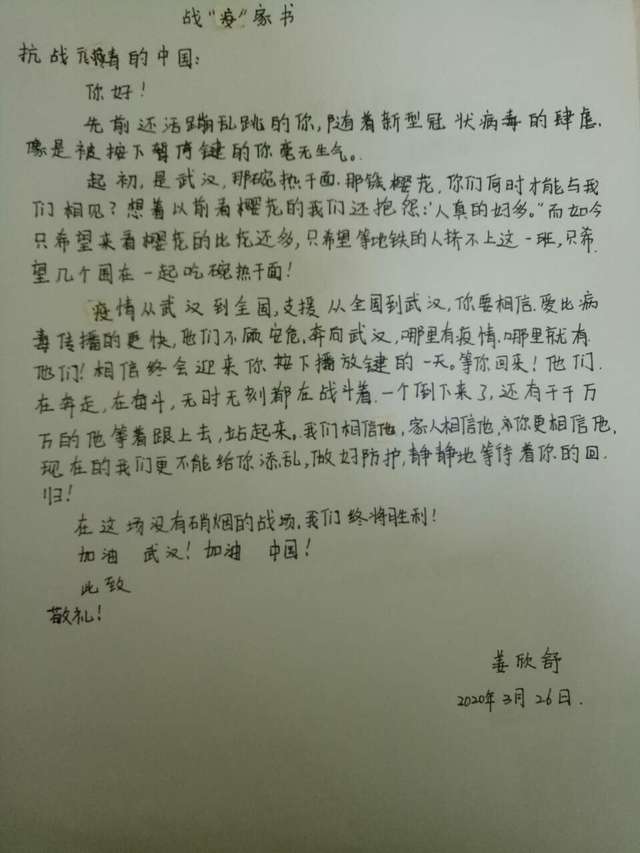 战“疫”家书
抗战疫情的中国：
你好！
先前还活蹦乱跳的你,随着新型冠状病毒的肆虐.
像是被按下暂停键的你毫无生气。
起初,是武汉,那碗热干面.那簇樱花,你们何时才能与我
们相见?想着以前看樱花的我们还抱怨:“人真的好多。”而如今
只希望来看樱花的比花还多,只希望等地铁的人挤不上这一班,只希
望几个围在一起吃碗热干面!
疫情从武汉到全国,支援从全国到武汉,你要相信.爱比病
毒传播的更快,他们不顾安危.奔向武汉,哪里有疫情.哪里就有
他们!相信终会迎来你按下播放键的一天。等你回来!他们.
在奔走,在奋斗,无时无刻都在战斗着.一个倒下来了,还有千千万
万的他等着跟上去,站起来。我们相信他,家人相信他,你更相信他,
现在的我们更不能给你添乱,做好防护,静静地等待着你的回
归!
在这场没有硝烟的战场.我们终将胜利!
加油 武汉!加油 中国!
此致
敬礼!
姜欣舒
2020年3月26日.